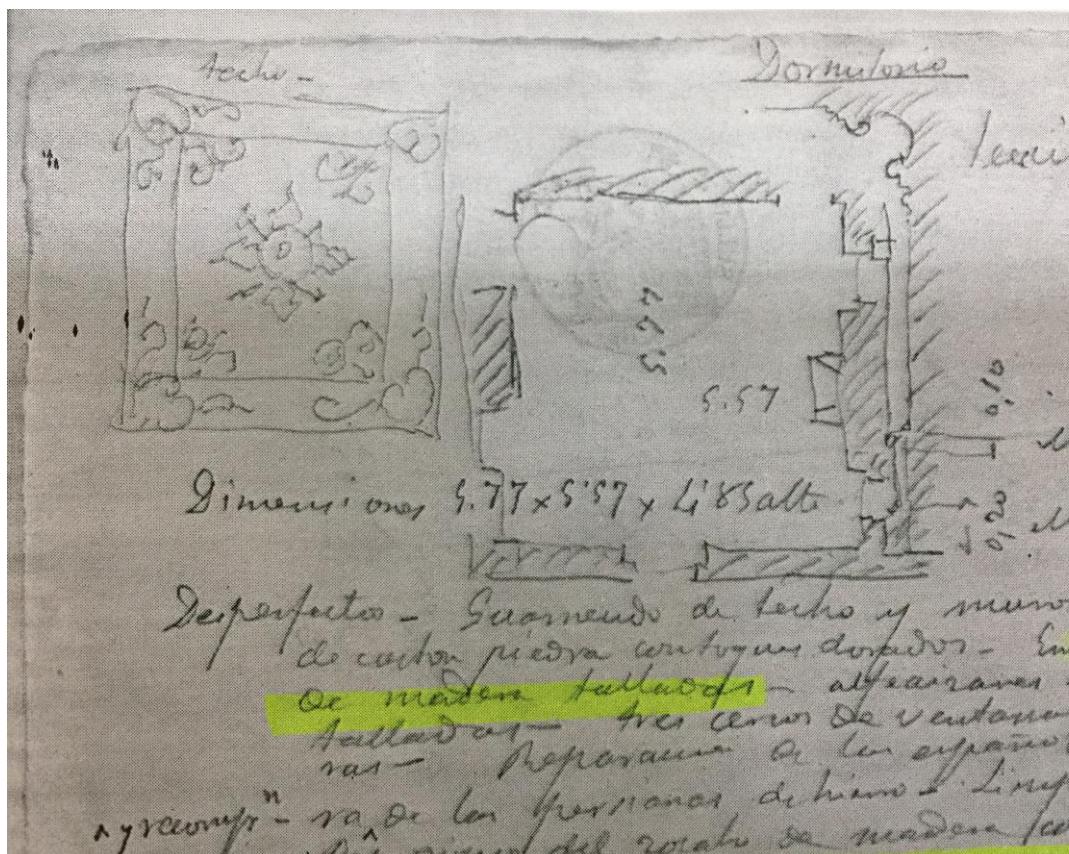 techo -
Dormitorio
5.77
5.57
0,10
0,20
Dimensiones 5.77 x 5'57 x 4'85 alto
Desperfectos - Guarnecido de techo y muros
de carton piedra con toques dorados - En
de madera talladas - alfeizares -
tallados - tres cercos de ventanas
ras - Reparacion de las españo
ra de las persianas de hierro - Limp
del zocalo de madera